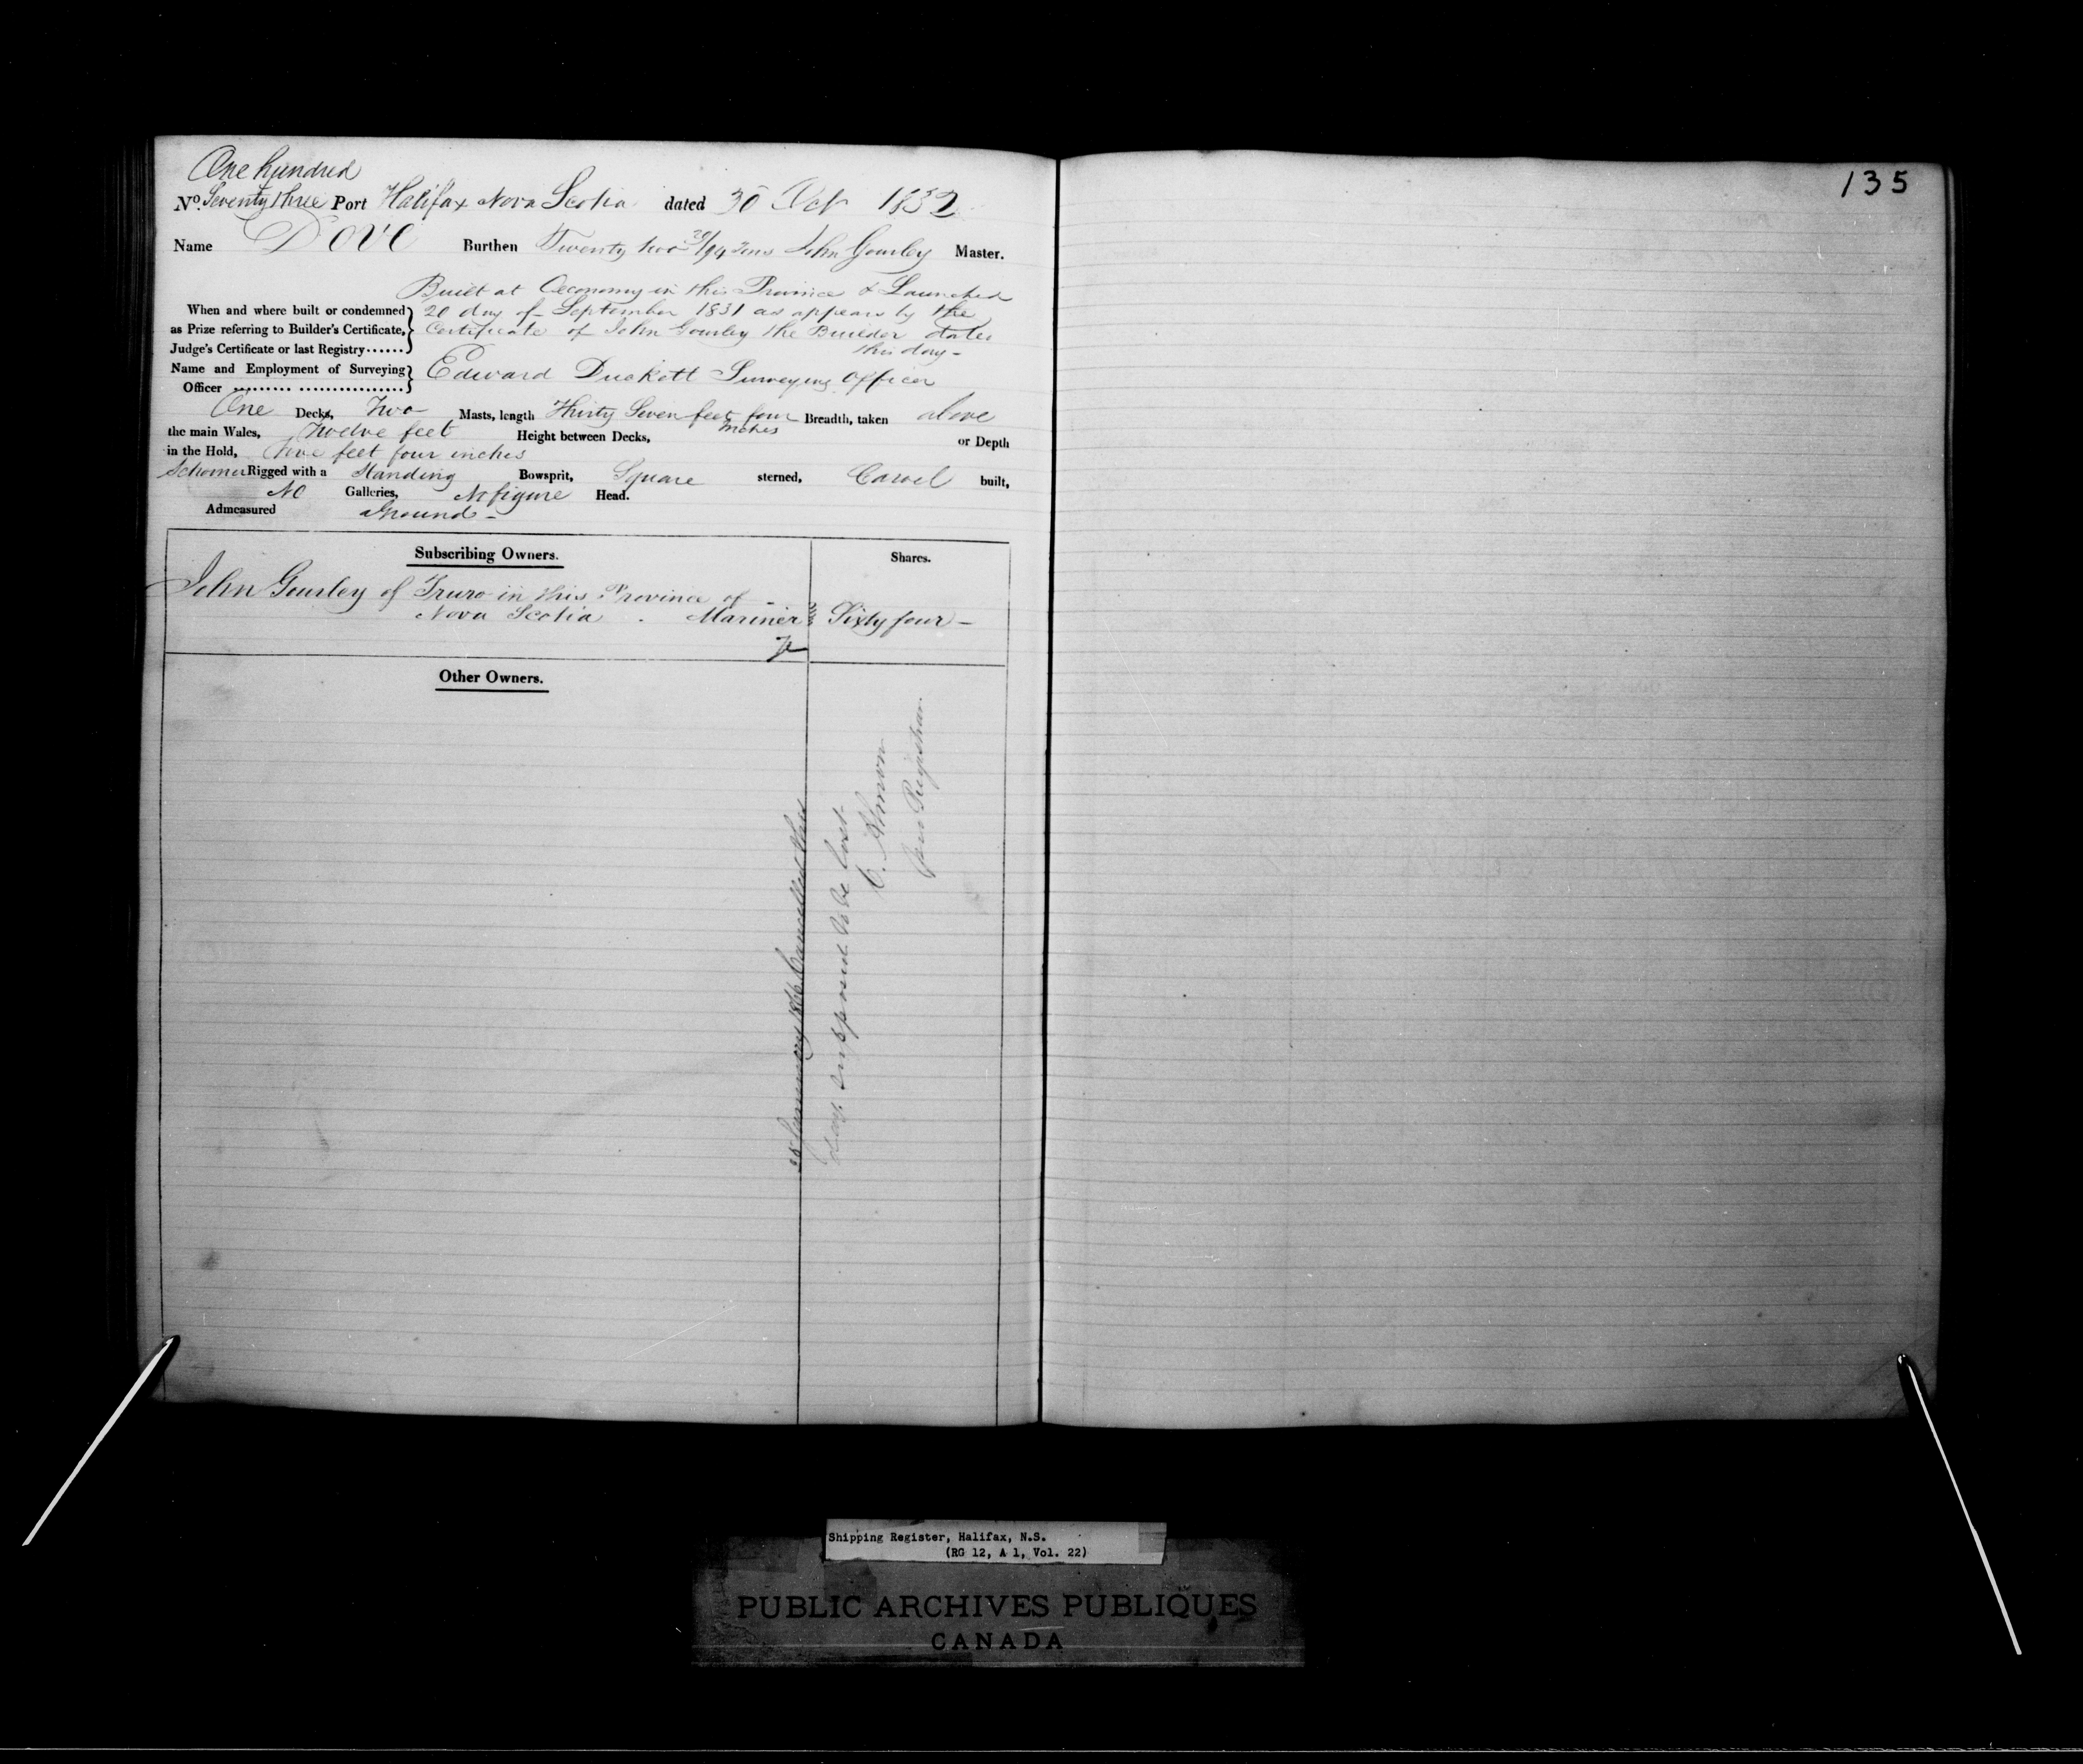 One hundred
No. Seventy three Port Halifax Nova Scotia dated 30 Oct 1832
Name Dove Burthen Twenty two 29/94 Tons John Gourley Master.
Built at Œconomy in this Province & Launched
When and where built or condemned 20 day of September 1831 as appears by the
as Prize referring to Builder's Certificate, Certificate of John Gourley the Builder dated
Judge's Certificate or last Registry...... this day -
Name and Employment of Surveying Edward Duckett Surveying Officer
Officer ......... ................
One Decks, Two Masts, length Thirty Seven feet four inches Breadth, taken above
the main Wales, Twelve feet Height between Decks, or Depth
in the Hold, Five feet four inches
Schooner Rigged with a Standing Bowsprit, Square sterned, Carvel built,
No Galleries, No figure Head.
Admeasured aground -
Subscribing Owners. Shares.
John Gourley of Truro in this Province of
Nova Scotia . Mariner Sixty four -
Other Owners.
28 January 1846 Cancelled this
day, supposed to be lost
C. Almon
pro Registrar
135
Shipping Register, Halifax, N.S.
(RG 12, A 1, Vol. 22)
PUBLIC ARCHIVES PUBLIQUES
CANADA